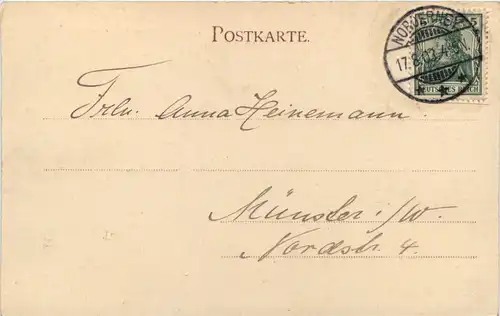 POSTKARTE.
NORDERNEY
17.8.02.4-5N
5
DEUTSCHES REICH
Frln. Anna Heinemann.
Münster i/W.
Nordstr. 4.